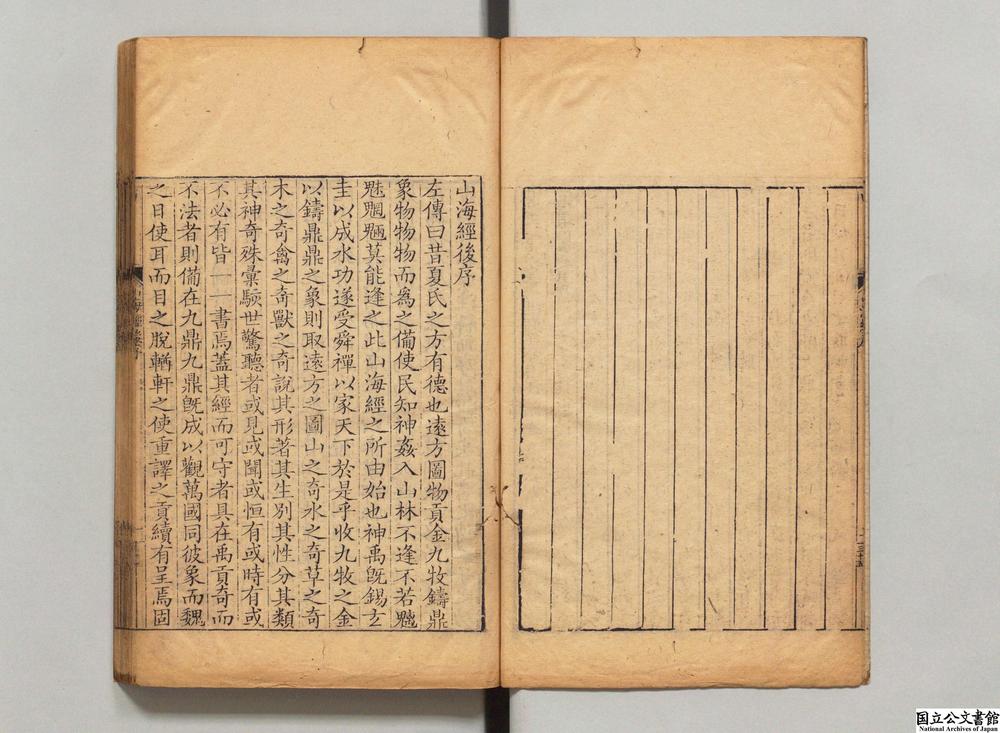 山海經後序
左傳曰昔夏氏之方有德也遠方圖物貢金九牧鑄鼎
象物物物而爲之備使民知神姦入山林不逢不若魑
魅魍魎莫能逢之此山海經之所由始也神禹既錫玄
圭以成水功遂受舜禪以家天下於是乎收九牧之金
以鑄鼎鼎之象則取遠方之圖山之奇水之奇草之奇
木之奇禽之奇獸之奇說其形著其生別其性分其類
其神奇殊彙駭世驚聽者或見或聞或恒有或時有或
不必有皆一一書焉蓋其經而可守者具在禹貢奇而
不法者則備在九鼎九鼎既成以觀萬國同彼象而魏
之日使耳而目之脫輶軒之使重譯之貢續有呈焉固
国立公文書館
National Archives of Japan